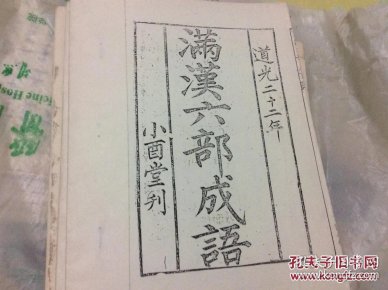 道光二十二年
滿漢六部成語
小酉堂刋
孔夫子旧书网